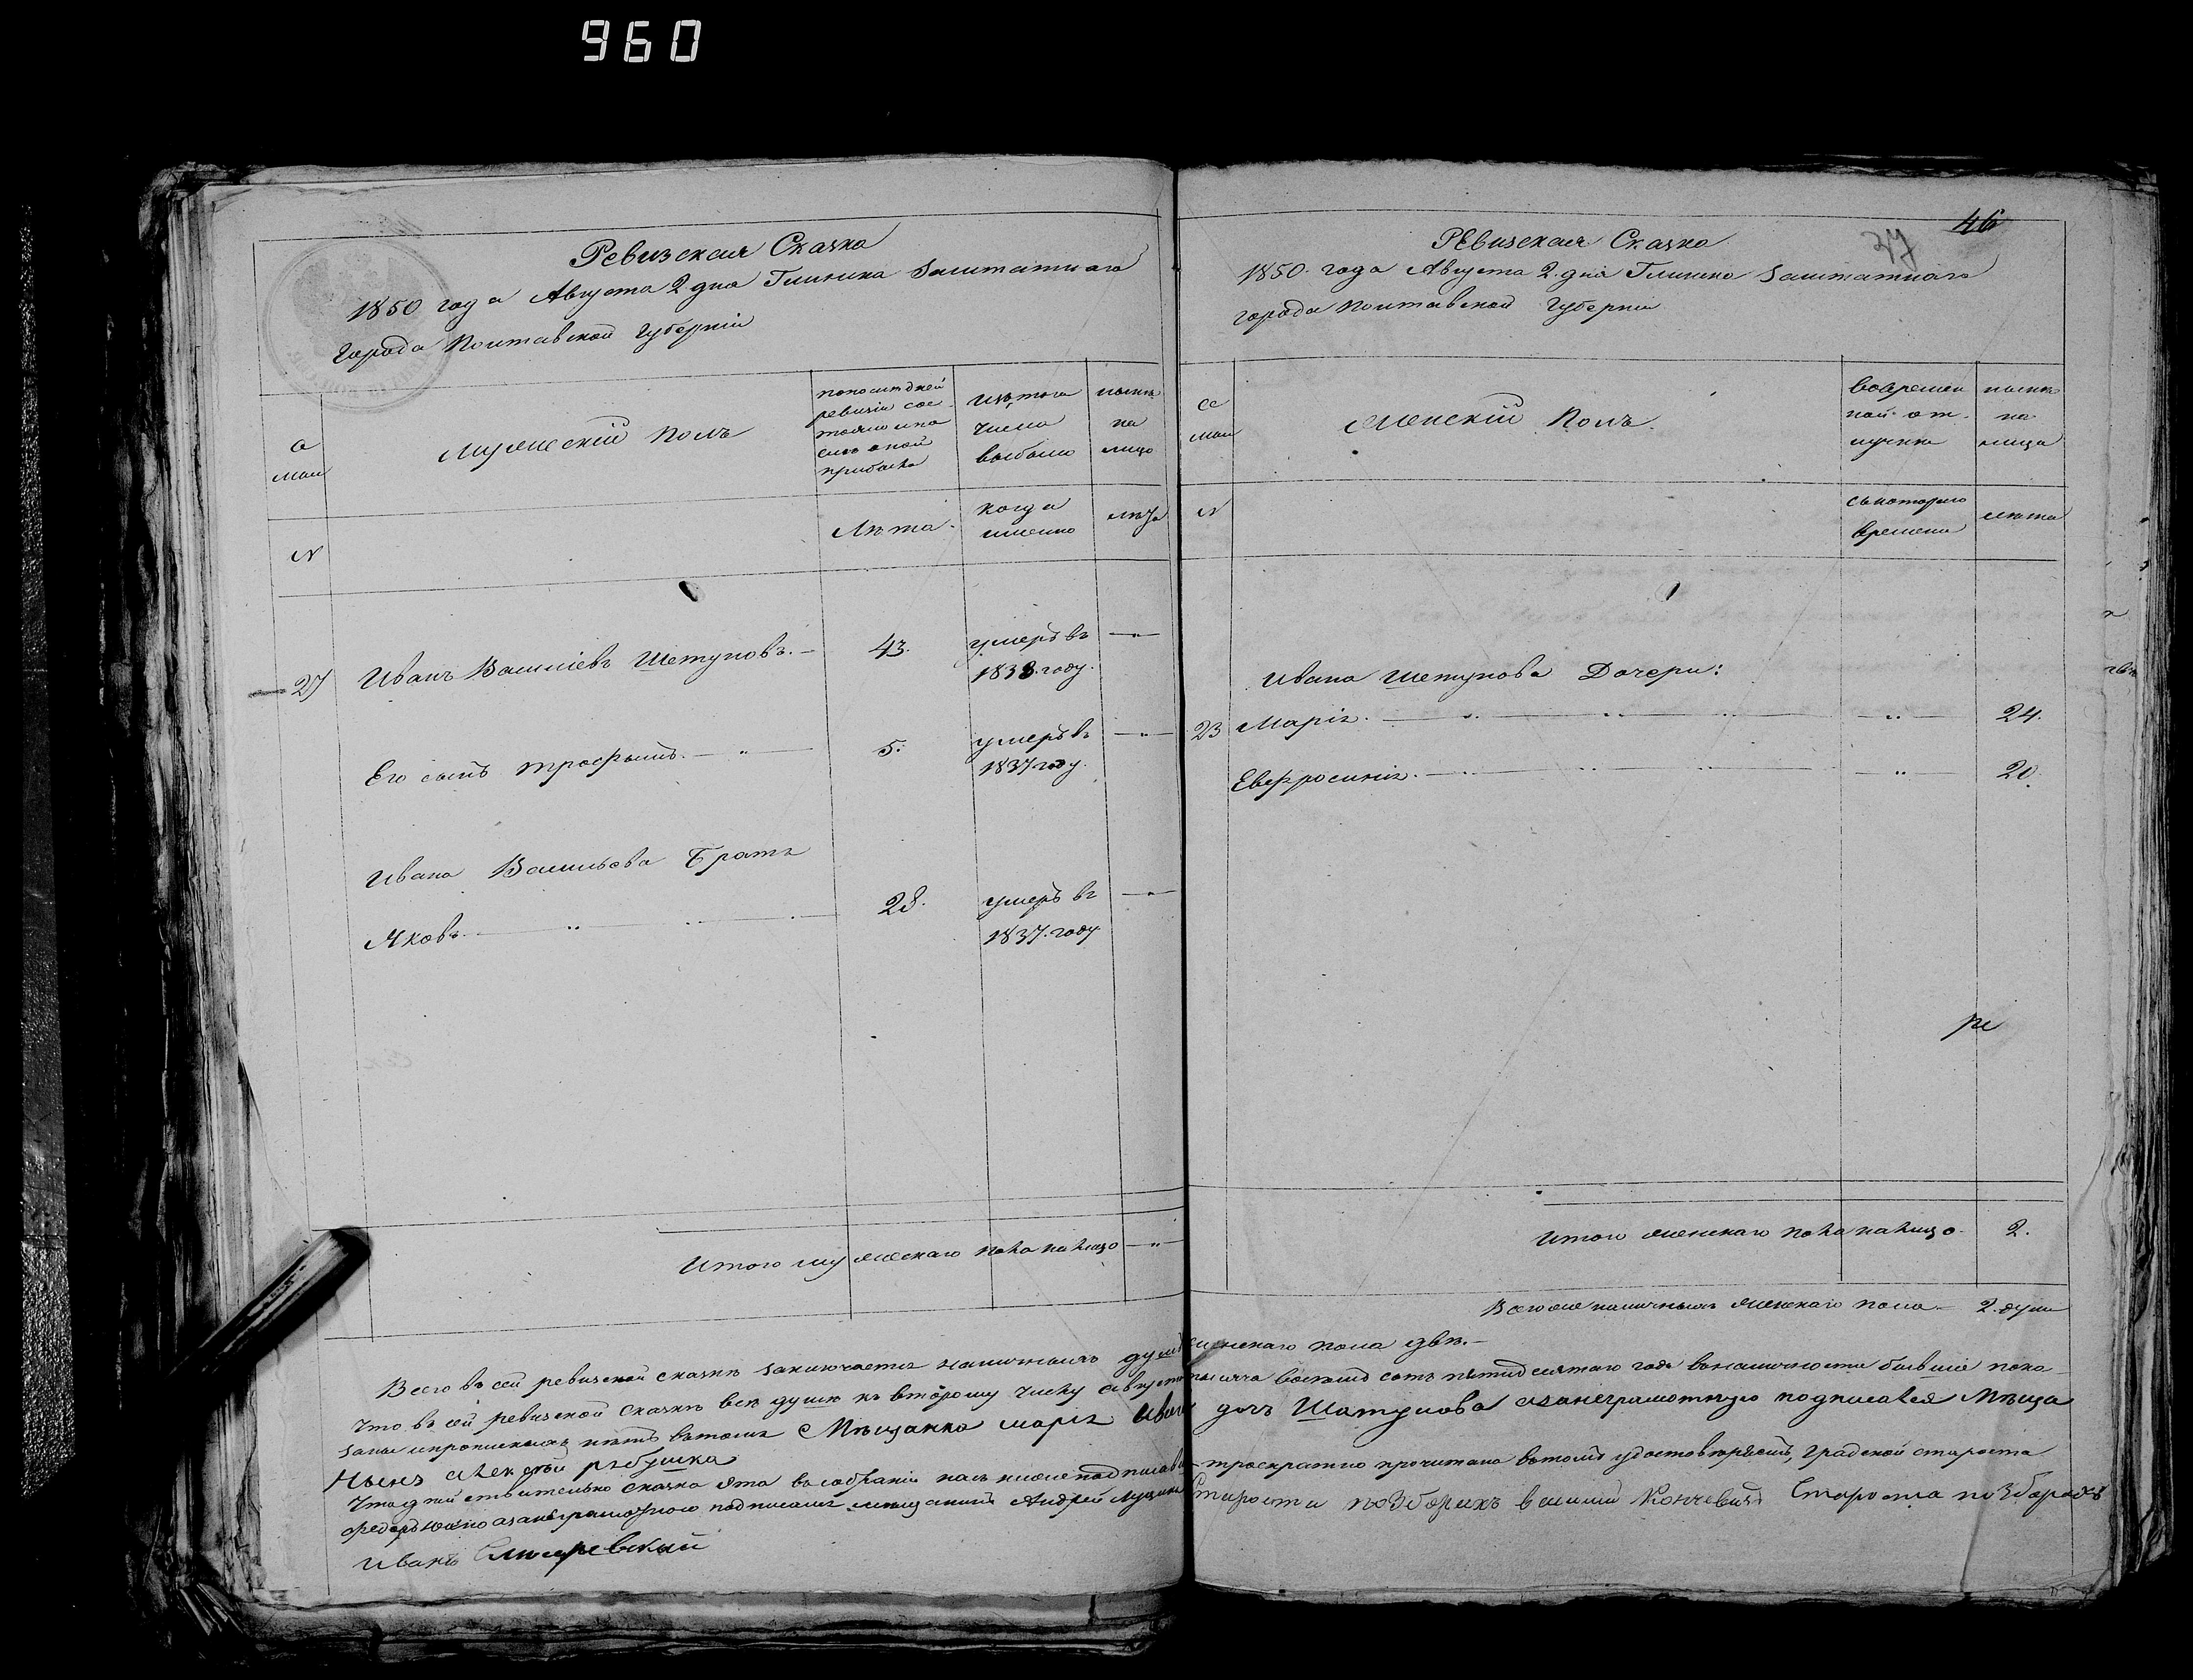 960
Ревизская Сказка
1850 года Августа 2 дня Глинска заштатнаго
города Полтавской Губерніи
мужескій полъ
по последней
ревизіи сос
тояло и по
сле оной
прибыло
изъ того
числа
выбыло
ныне
на
лицо
Лѣта
когда
именно
лѣта
N
27 Иванъ Василіевъ Шетуновъ. 43. умеръ въ
1838. году.
Его сынъ Трофимъ. 5. умеръ въ
1837 году.
Ивана Васильева Братъ
Яковъ. 28. умеръ въ
1837. году
Итого мужескаго пола на лицо
46
37
Ревизская Сказка
1850. года Августа 2. дня Глинска заштатнаго
города Полтавской Губерніи
женскій полъ.
во времен
ной от
лучке
ныне
на
лицо
съ котораго
времени
лѣта
N
Ивана Шетунова Дочери:
23 Марія. 24.
Евфросинія. 20.
Итого женскаго пола на лицо 2.
Всего же наличныхъ женскаго пола 2. души
Всего въ сей ревизской сказкѣ заключается наличныхъ душъ женскаго пола двѣ.
Что въ сей ревизской сказкѣ все души къ второму числу августа тысяча восемь сотъ пятидесятаго года въ наличности бывшіе пока
заны и прописныхъ нѣтъ въ томъ Мѣщанка Марія Ивана дочь Шатунова а за неграмотную подписался Мѣща
нинъ Алексѣй
Что действительно сказка эта въ собраніи насъ нижеподписав троекратно прочитана въ томъ удостоверяемъ, Градской староста
Федоръ а за неграмотнаго подписалъ мещанинъ Андрей Староста по зборахъ Василий Староста по зборахъ
Иванъ